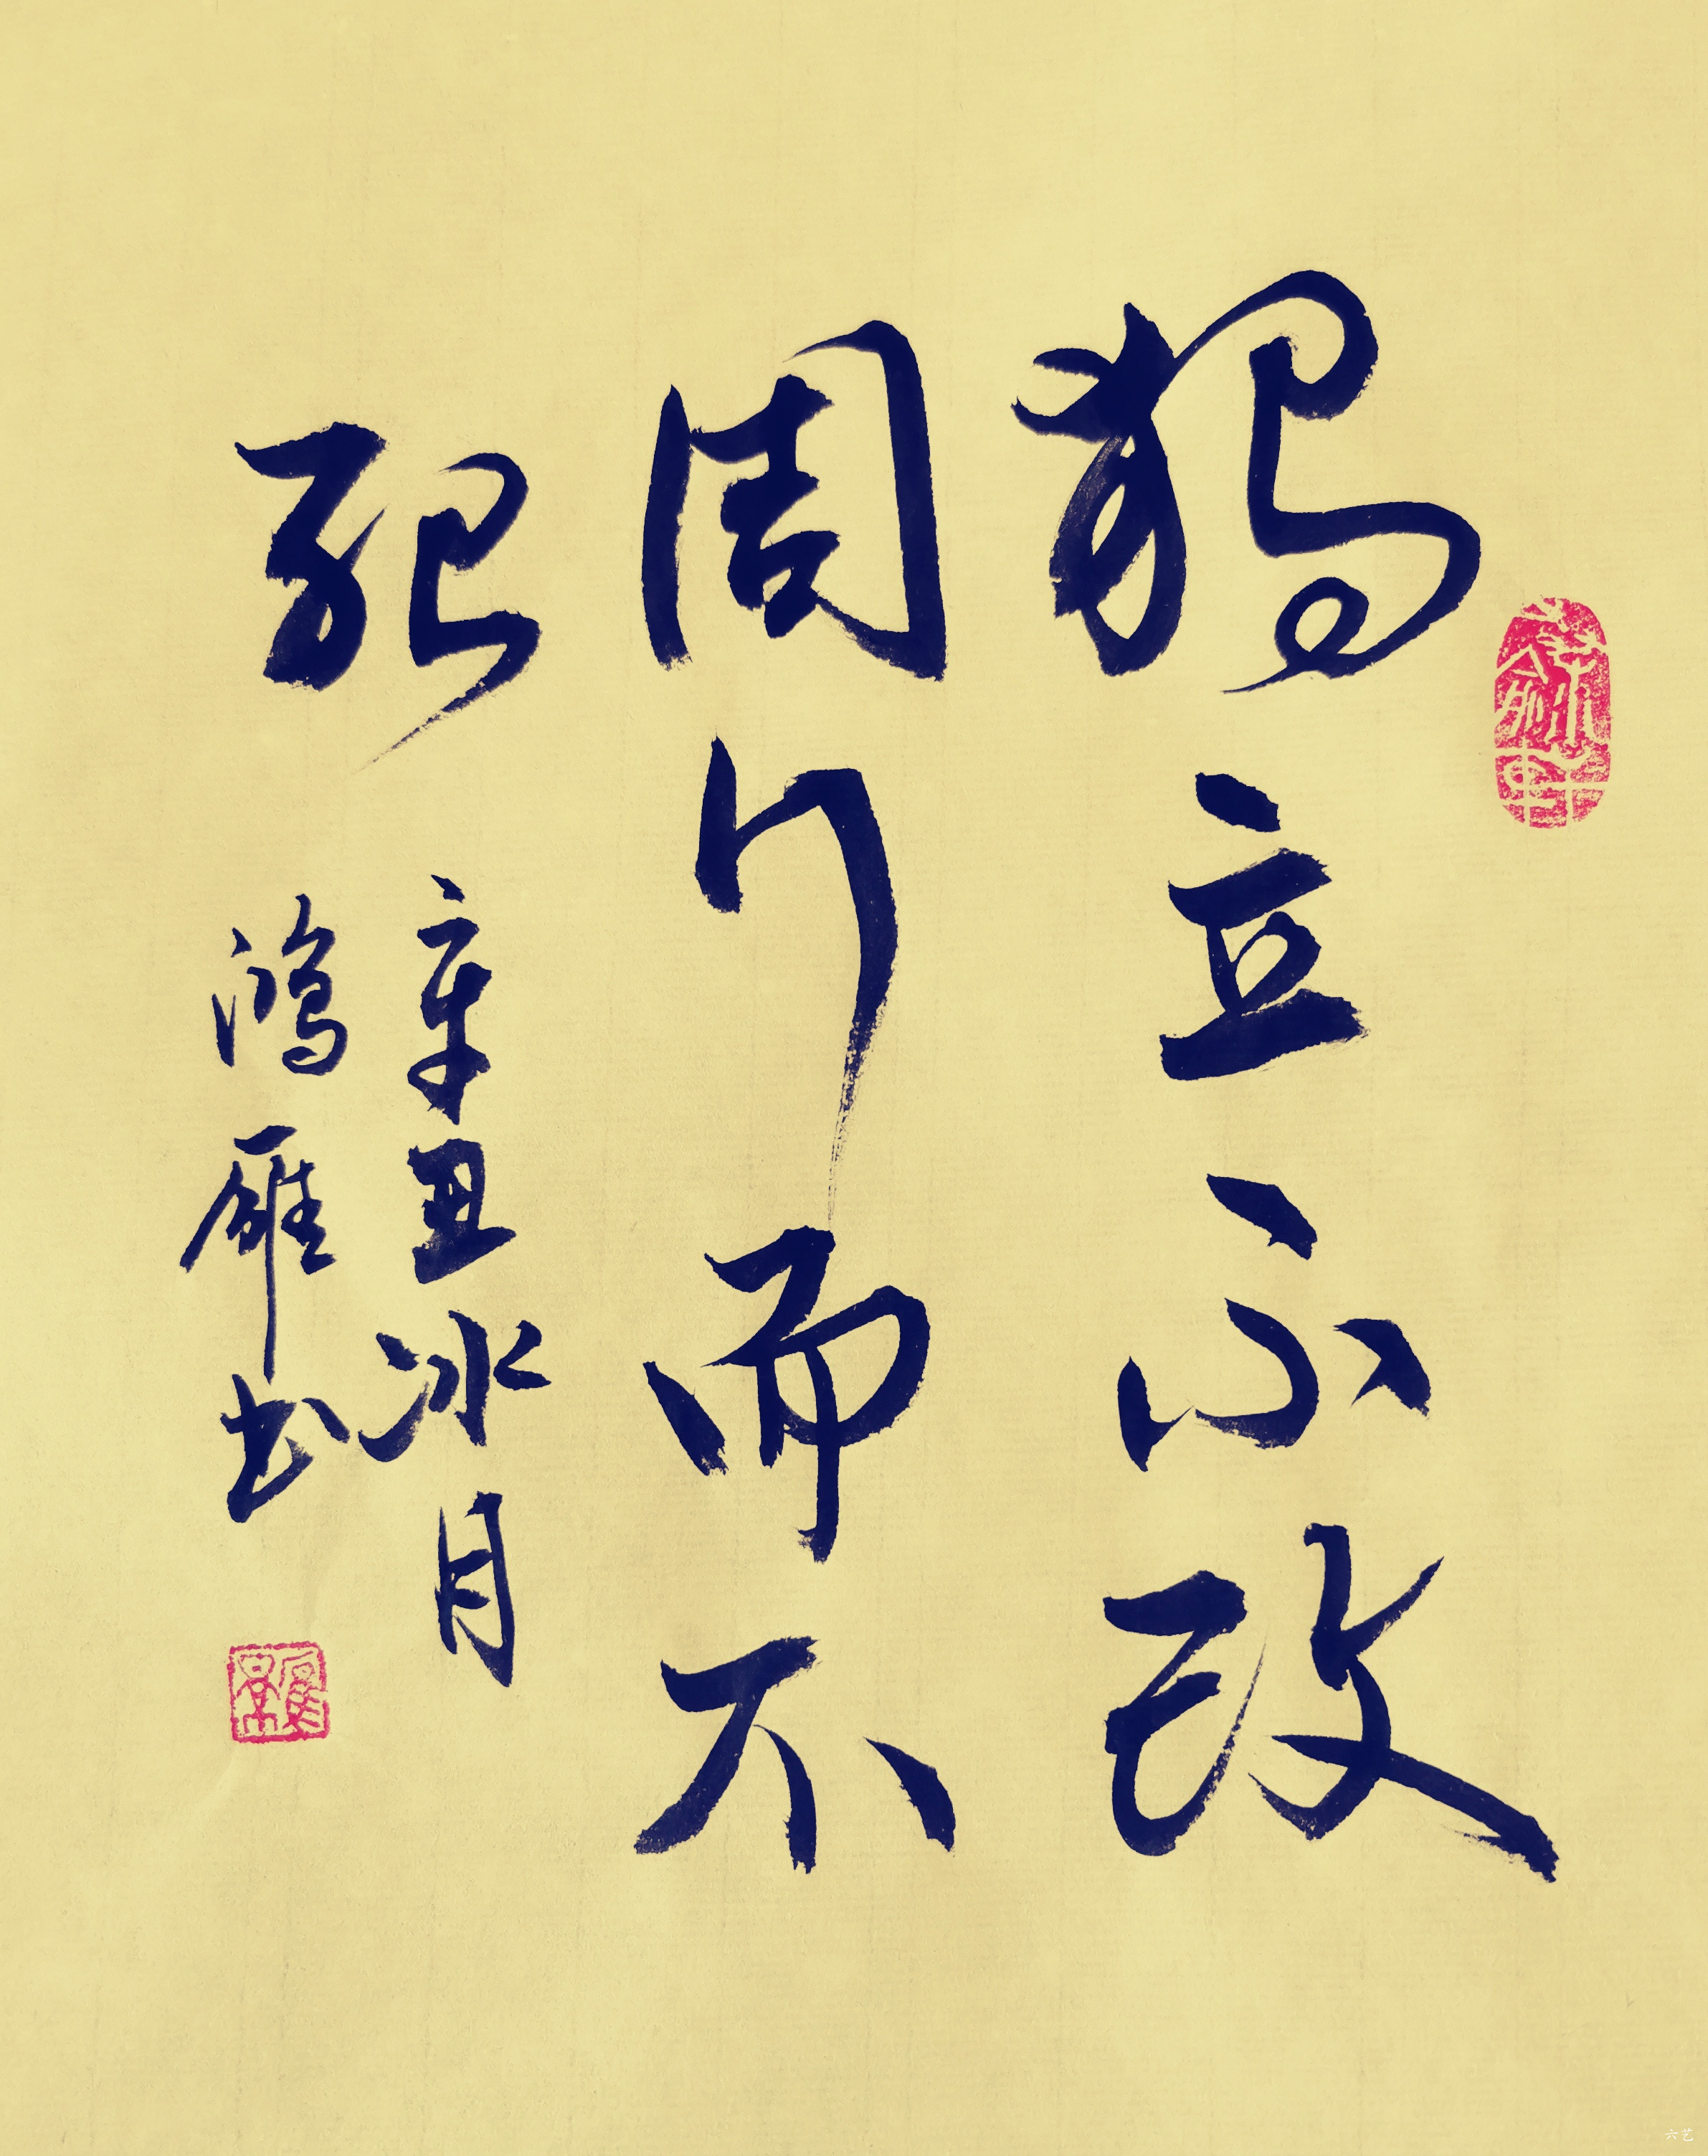 獨立不改
周行而不
殆
辛丑冰月
鴻雁书
六艺